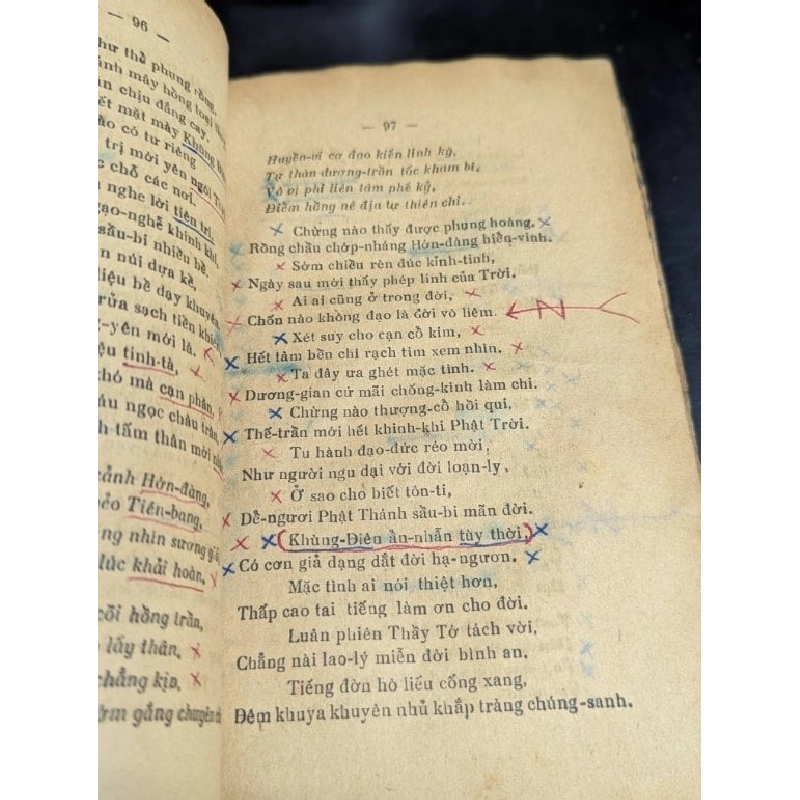 — 96 —
như thể phụng rồng,
mây hồng
chịu đắng cay.
mặt mày không
có tư riêng
trị mới yên ngôi
chỗ các nơi.
nghe lời tiên tri,
ngạo-nghễ khinh khi,
sầu-bi nhiều bề.
núi dựa kề,
liệu bề dạy khuyên
rửa sạch tiền khiên
yên mới là.
tinh-tà,
khó mà cạn phân,
ngọc châu trân,
tấm thân mới
cảnh Hớn-đàng,
Tiên-bang,
nhìn sương
lúc khải hoàn.
cõi hồng trần,
lấy thân.
chẳng kịp,
gắng chuyên
— 97 —
Huyền-vi cơ đạo kiến linh kỳ,
Tự thán dương-trần tốc khảm bi,
Vô vị phi liên tâm phế kỷ,
Điểm hồng nê địa tự thiên chi.
Chừng nào thấy được phụng hoàng.
Rồng chầu chớp-nháng Hớn-dàng hiển-vinh.
Sớm chiều rèn đúc kinh-tinh,
Ngày sau mới thấy phép linh của Trời.
Ai ai cũng ở trong đời,
Chốn nào không đạo là đời vô liêm.
Xét suy cho cạn cổ kim,
Hết tâm bền chí rạch tim xem nhìn.
Ta đây ưa ghét mặc tình.
Dương-gian cứ mãi chống-kình làm chi.
Chừng nào thượng-cổ hồi qui,
Thế-trần mới hết khinh-khi Phật Trời.
Tu hành đạo-đức réo mời,
Như người ngu dại với đời loạn-ly,
Ở sao cho biết tôn-ti,
Dể-ngươi Phật Thánh sầu-bi mãn đời.
(Khùng-Điên ẩn-nhẫn tùy thời,)
Có cơn giả dạng dắt đời hạ-ngươn.
Mặc tình ai nói thiệt hơn,
Thấp cao tai tiếng làm ơn cho đời.
Luân phiên Thầy Tớ tách vời,
Chẳng nài lao-lý miễn đời bình an.
Tiếng đờn hò líu cống xang,
Đêm khuya khuyên nhủ khắp tràng chúng-sanh.